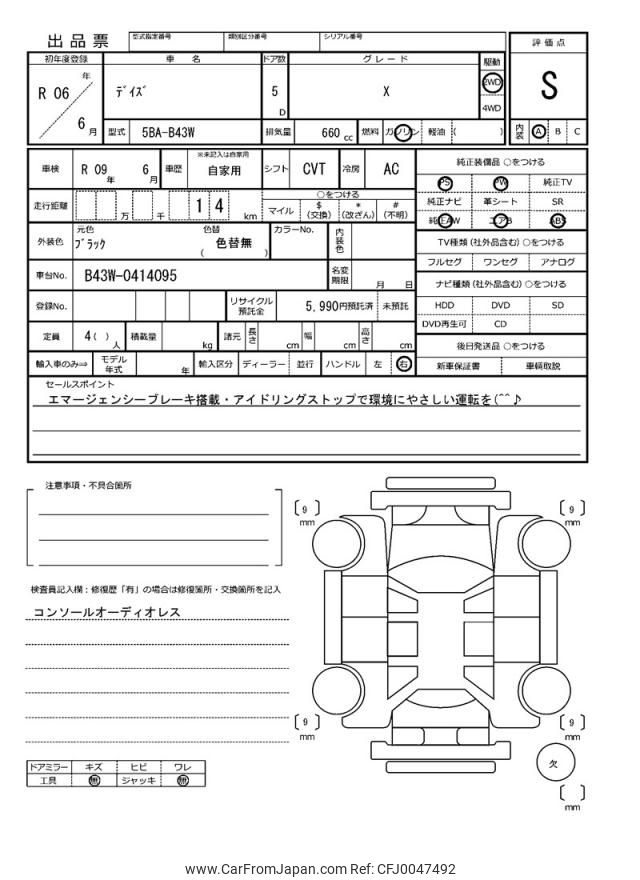 出品票
型式指定番号 類別区分番号 シリアル番号
評価点
S
内装 A B C
初年度登録 車名 ドア数 グレード 駆動
R 06 年 6 月
デイズ
5 D
X
2WD
4WD
型式 5BA-B43W 排気量 660 cc 燃料 ガソリン 軽油 ( )
車検 R 09 年 6 月 車歴 ※未記入は自家用 自家用 シフト CVT 冷房 AC
走行距離 万 千 1 4 km
○をつける
マイル $ (交換) * (改ざん) # (不明)
外装色 元色 ブラック 色替 色替無 ( ) カラーNo. 内装色
車台No. B43W-0414095 名変期限 月 日
登録No. リサイクル預託金 5,990円預託済 未預託
定員 4 ( ) 人 積載量 kg 諸元 長さ cm 幅 cm 高さ cm
輸入車のみ⇒ モデル年式 年 輸入区分 ディーラー 並行 ハンドル 左 右
純正装備品 ○をつける
PS PW 純正TV
純正ナビ 革シート SR
純正AW エアB ABS
TV種類 (社外品含む) ○をつける
フルセグ ワンセグ アナログ
ナビ種類 (社外品含む) ○をつける
HDD DVD SD
DVD再生可 CD
後日発送品 ○をつける
新車保証書 車輌取説
セールスポイント
エマージェンシーブレーキ搭載・アイドリングストップで環境にやさしい運転を(^^♪
注意事項・不具合箇所
検査員記入欄：修復歴「有」の場合は修復箇所・交換箇所を記入
コンソールオーディオレス
ドアミラー キズ ヒビ ワレ
工具 無 ジャッキ 無
9 mm
9 mm
9 mm
9 mm
欠
mm
www.CarFromJapan.com Ref: CFJ0047492